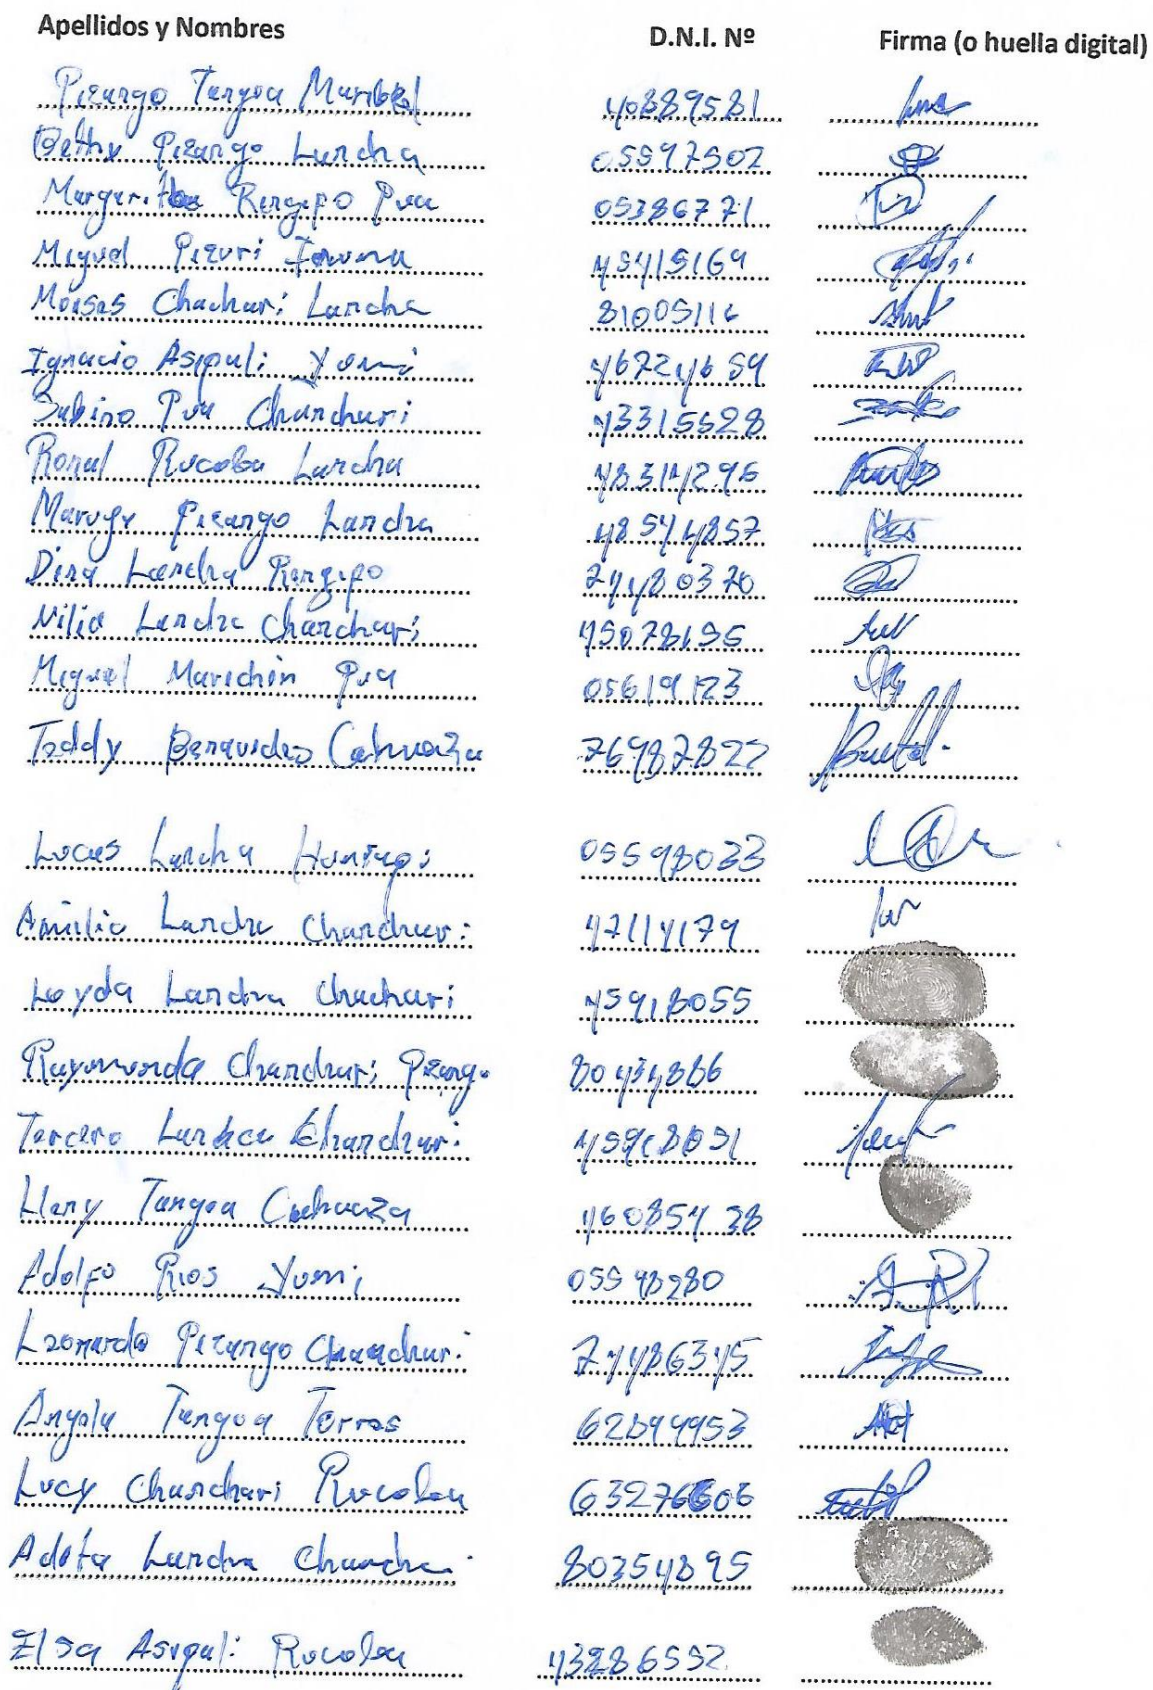 Apellidos y Nombres D.N.I. Nº Firma (o huella digital)
Pizango Tangoa Maribel 40889581
Bethy Pizango Lancha 05597502
Margarita Rengifo Pua 05386771
Miguel Pizuri 45415169
Moises Chachari Lancha 8100511
Ignacio Asipali Yumi 46724659
Sabino Pua Chanchari 43315528
Ronal Rucoba Lancha 48314296
Pizango Lancha 48544857
Dina Lancha Rengifo 74480370
Nilia Lancha Chanchari 45078195
Miguel Marichin Pua 05619123
Teddy Benavides Cahuaza 76987822
Lucas Lancha 05598033
Amilia Lancha Chanchari 47114179
Loyda Lancha Chachari 45918055
Raymunda Chanchari Pizango 80434866
Tercero Lancha Chanchari 45918051
Lleny Tangoa Cahuaza 46085438
Adolfo Rios Yumi 05598280
Leonardo Pizango Chanchari 74486345
Angela Tangoa Torres 62694953
Lucy Chanchari Rucoba 63276606
Adita Lancha 80354895
Elsa Asipali Rucoba 43286552